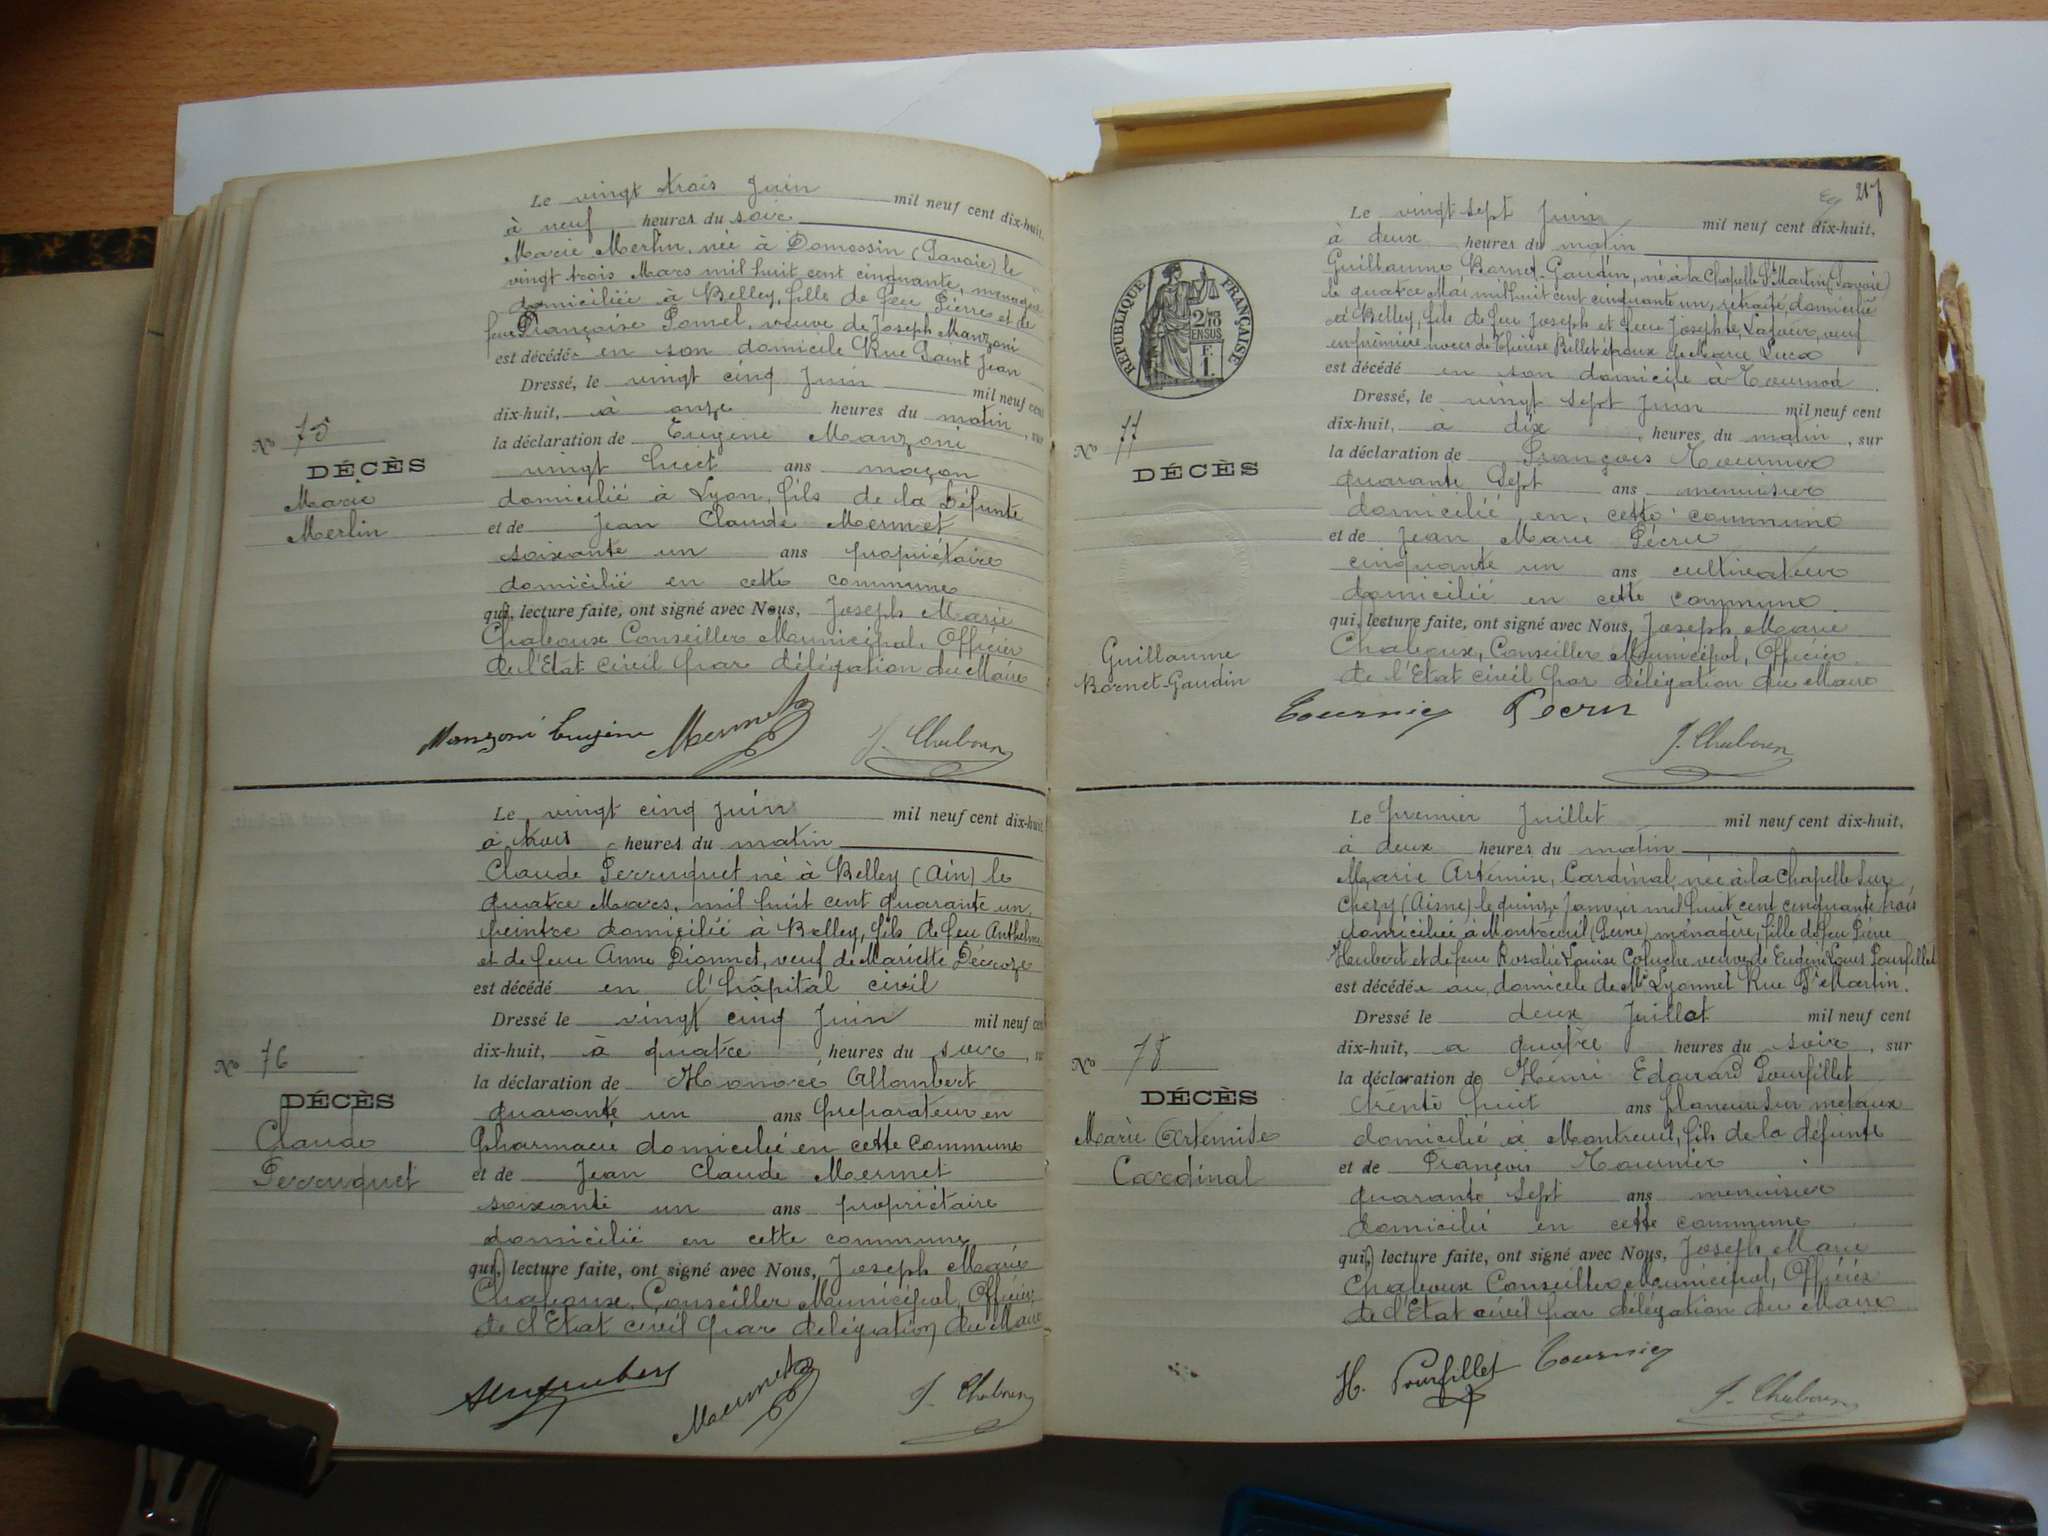 Le vingt trois Juin mil neuf cent dix-huit,
à neuf heures du soir
Marie Merlin, née à Domessin (Savoie) le
vingt trois Mars mil huit cent cinquante, ménagère
domiciliée à Belley, fille de feu Pierre et de
feue Françoise Pomel, veuve de Joseph Manzoni
est décédée en son domicile Rue Saint Jean
Dressé, le vingt cinq Juin mil neuf cent
dix-huit, à onze heures du matin, sur
No 75
la déclaration de Eugène Manzoni
DÉCÈS
vingt huit ans maçon
Marie
domicilié à Lyon, fils de la Défunte
Merlin
et de Jean Claude Mermet
soixante un ans propriétaire
domicilié en cette commune
qui, lecture faite, ont signé avec Nous, Joseph Marie
Chaboux Conseiller Municipal, Officier
de l'Etat civil par délégation du Maire
Manzoni Eugène Mermet J. Chaboux
Le vingt cinq Juin mil neuf cent dix-huit,
à trois heures du matin
Claude Perruquet né à Belley (Ain) le
quatre Mars, mil huit cent quarante un,
peintre domicilié à Belley, fils de feu Anthelme
et de feue Anne Dionnet, veuf de Mariette Décroze
est décédé en l'hôpital civil
Dressé le vingt cinq Juin mil neuf cent
dix-huit, à quatre heures du soir
No 76
la déclaration de Honoré Allombert
DÉCÈS
quarante un ans préparateur en
Claude
pharmacie domicilié en cette commune
Perruquet
et de Jean Claude Mermet
soixante un ans propriétaire
domicilié en cette commune
qui, lecture faite, ont signé avec Nous, Joseph Marie
Chaboux, Conseiller Municipal, Officier
de l'Etat civil par délégation du Maire
Mermet J. Chaboux
217
Le vingt sept Juin mil neuf cent dix-huit,
à deux heures du matin
Guillaume Bornet-Gaudin, né à la Chapelle St Martin (Savoie)
le quatre Mai mil huit cent cinquante un, retraité, domicilié
à Belley, fils de feu Joseph et feue Josephte, veuf
en première noces de Thérèse Billet époux de Marie
est décédé en son domicile à
RÉPUBLIQUE FRANÇAISE
2/10 EN SUS
F. 1.
Dressé, le vingt sept Juin mil neuf cent
dix-huit, à dix, heures du matin, sur
No 77
la déclaration de François Tournier
DÉCÈS
quarante sept ans menuisier
domicilié en cette commune
et de Jean Marie Pécru
cinquante un ans cultivateur
domicilié en cette commune
qui, lecture faite, ont signé avec Nous, Joseph Marie
Guillaume
Chaboux, Conseiller Municipal, Officier
Bornet-Gaudin
de l'Etat civil par délégation du Maire
Tournier Pécru
J. Chaboux
Le premier Juillet mil neuf cent dix-huit,
à deux heures du matin
Marie Artémise Cardinal née à la Chapelle sur
Chézy (Aisne) le quinze Janvier mil huit cent cinquante trois
domiciliée à Montreuil (Seine) ménagère, fille de feu Pierre
Hubert et de feue Rosalie Louise Coluche veuve de Eugène Louis Pourfillet
est décédée au domicile de Mr Lyonnet Rue St Martin.
Dressé le deux Juillet mil neuf cent
dix-huit, à quatre heures du soir, sur
No 78
la déclaration de Henri Edouard Pourfillet
DÉCÈS
trente huit ans planeur sur métaux
Marie Artémise
domicilié à Montreuil, fils de la défunte
Cardinal
et de François Tournier
quarante sept ans menuisier
domicilié en cette commune
qui, lecture faite, ont signé avec Nous, Joseph Marie
Chaboux Conseiller Municipal, Officier
de l'Etat civil par délégation du Maire
H. Pourfillet Tournier
J. Chaboux